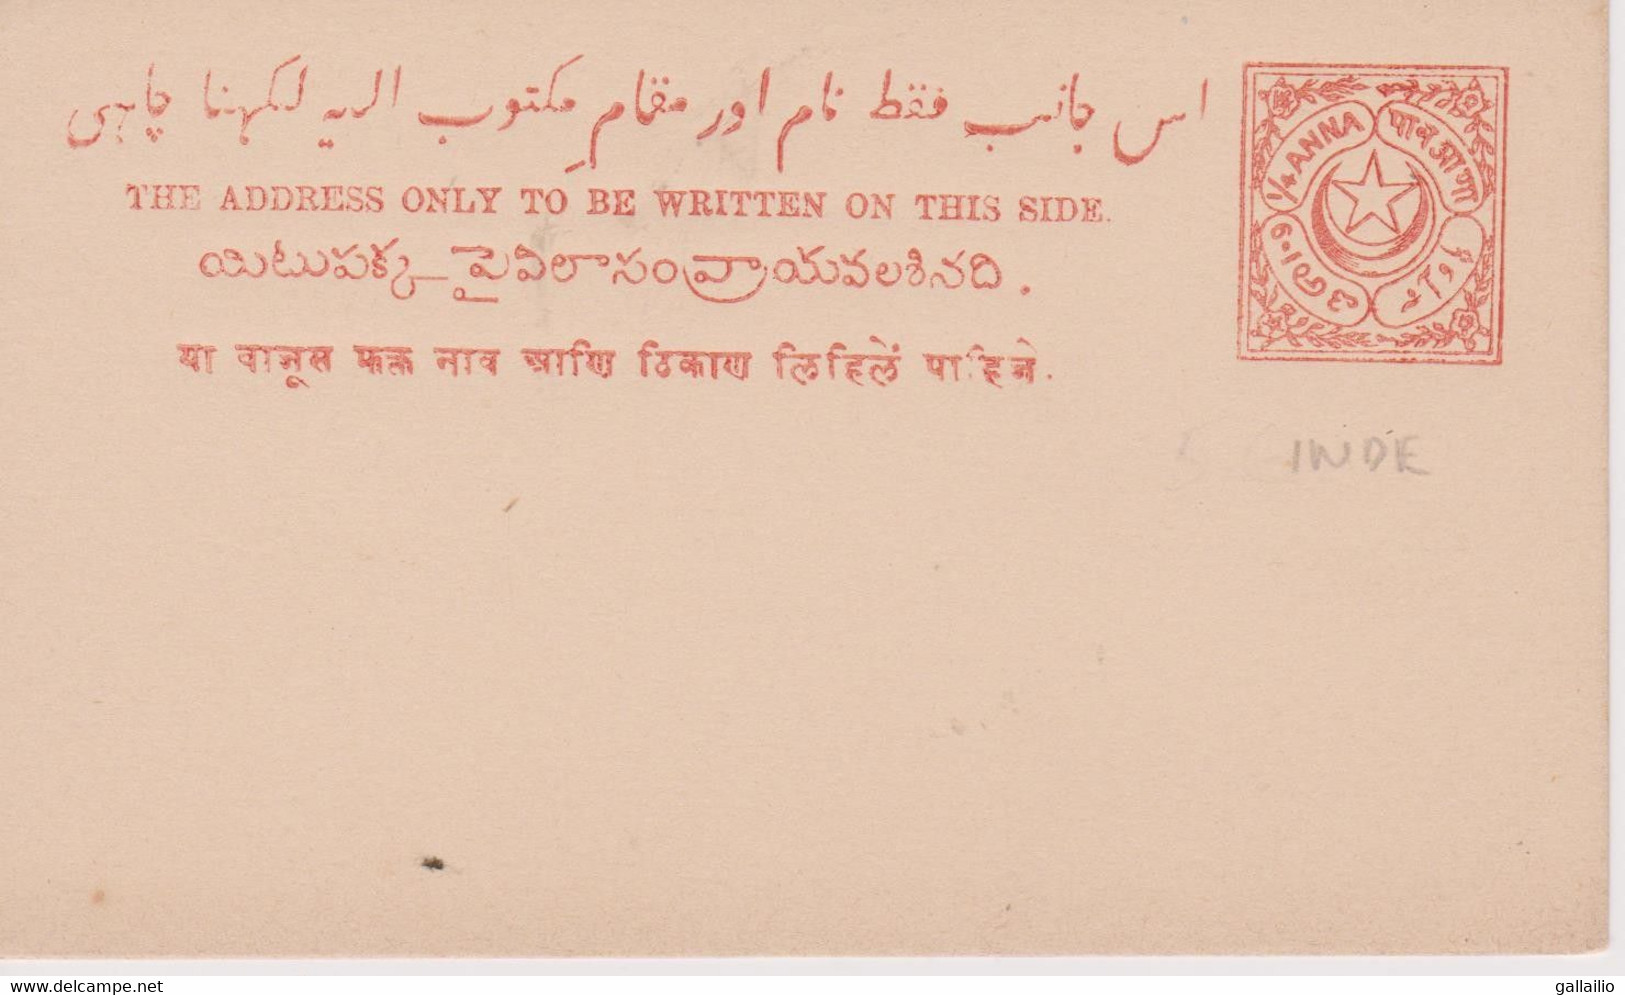 اس جانب فقط نام اور مقامِ مکتوب الیہ لکہنا چاہی
THE ADDRESS ONLY TO BE WRITTEN ON THIS SIDE.
యిటుపక్క పైవిలాసంవ్రాయవలశినది.
या बाजूस फक्त नाव आणि ठिकाण लिहिलें पाहिजे.
1/4 ANNA
पाव आणा
INDE
www.delcampe.net
gallailio